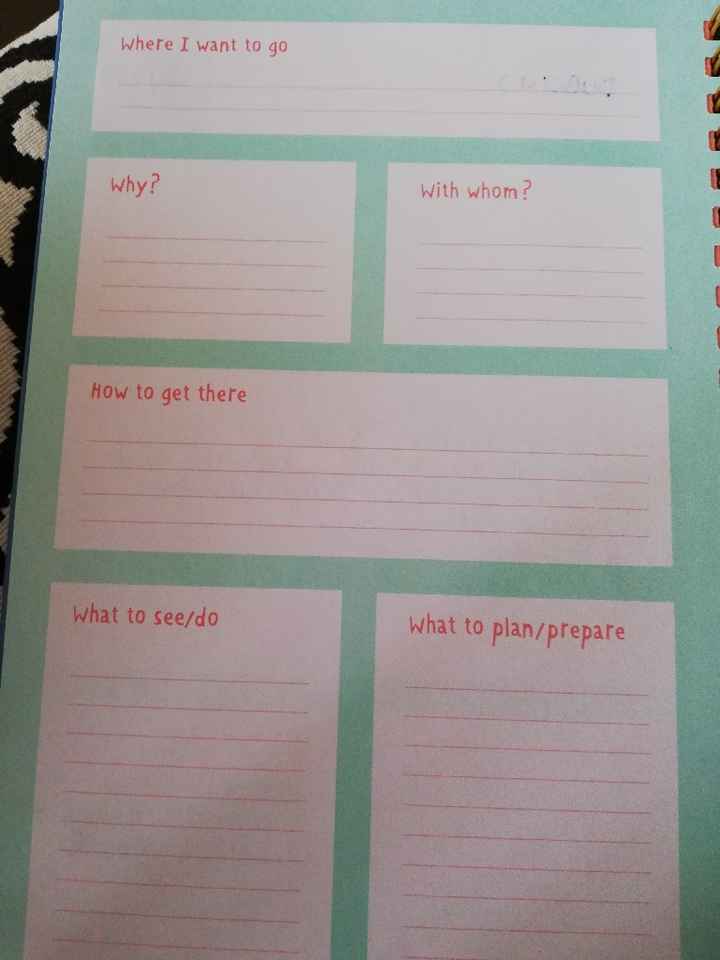 Where I want to go
Why?
With whom?
How to get there
What to see/do
What to plan/prepare